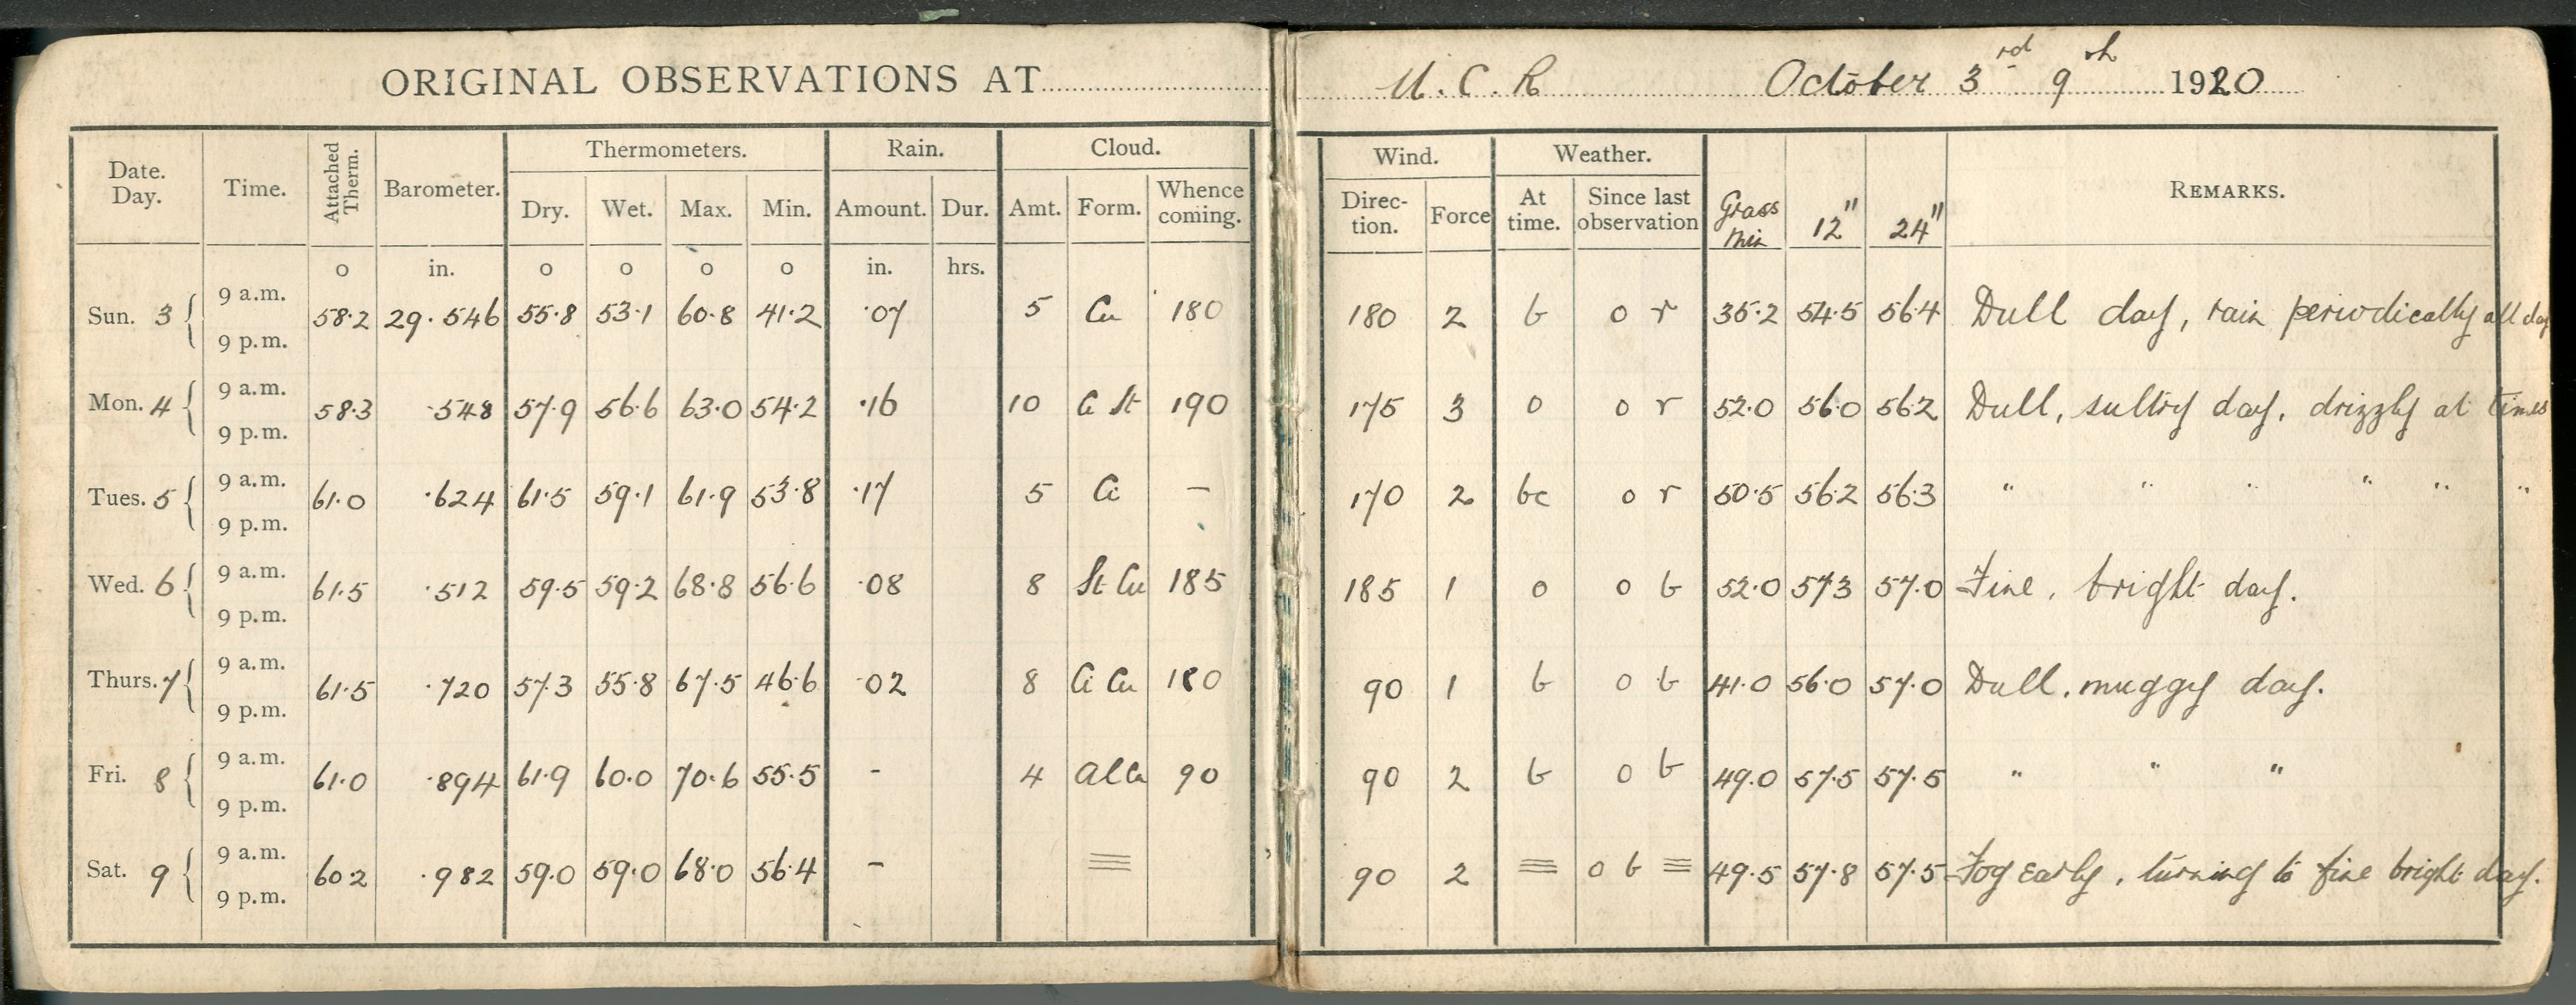 ORIGINAL OBSERVATIONS AT U. C. R October 3rd 9th 1920
Date. Day. Time. Attached Therm. Barometer. Thermometers. Rain. Cloud. Wind. Weather. Grass Min 12" 24" REMARKS.
Dry. Wet. Max. Min. Amount. Dur. Amt. Form. Whence coming. Direction. Force At time. Since last observation
o in. o o o o in. hrs.
Sun. 3 { 9 a.m. 9 p.m. 58.2 29.546 55.8 53.1 60.8 41.2 .07 5 Cu 180 180 2 b o r 35.2 54.5 56.4 Dull day, rain periodically all day
Mon. 4 { 9 a.m. 9 p.m. 58.3 .548 57.9 56.6 63.0 54.2 .16 10 Ci St 190 175 3 o o r 52.0 56.0 56.2 Dull, sultry day, drizzly at times
Tues. 5 { 9 a.m. 9 p.m. 61.0 .624 61.5 59.1 61.9 53.8 .17 5 Ci — 170 2 bc o r 50.5 56.2 56.3 " " " " " "
Wed. 6 { 9 a.m. 9 p.m. 61.5 .512 59.5 59.2 68.8 56.6 .08 8 St Cu 185 185 1 o o b 52.0 57.3 57.0 Fine, bright day.
Thurs. 7 { 9 a.m. 9 p.m. 61.5 .720 57.3 55.8 67.5 46.6 .02 8 Ci Cu 180 90 1 b o b 41.0 56.0 57.0 Dull, muggy day.
Fri. 8 { 9 a.m. 9 p.m. 61.0 .894 61.9 60.0 70.6 55.5 - 4 Al Cu 90 90 2 b o b 49.0 57.5 57.5 " " "
Sat. 9 { 9 a.m. 9 p.m. 60.2 .982 59.0 59.0 68.0 56.4 - ≡ 90 2 ≡ o b ≡ 49.5 57.8 57.5 Fog early, turning to fine bright day.